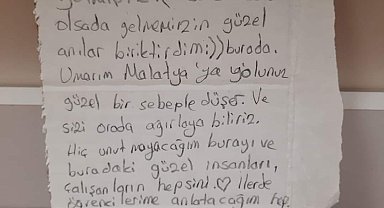 olsada gelmemizin güzel
anılar biriktirdim:)) burada.
Umarım Malatya'ya yolunuz
güzel bir sebeple düşer. Ve
sizi orada ağırlaya biliriz.
Hiç unutmayacağım burayı ve
buradaki güzel insanları,
çalışanların hepsini.♡ İlerde
öğrencilerime anlatacağım hep